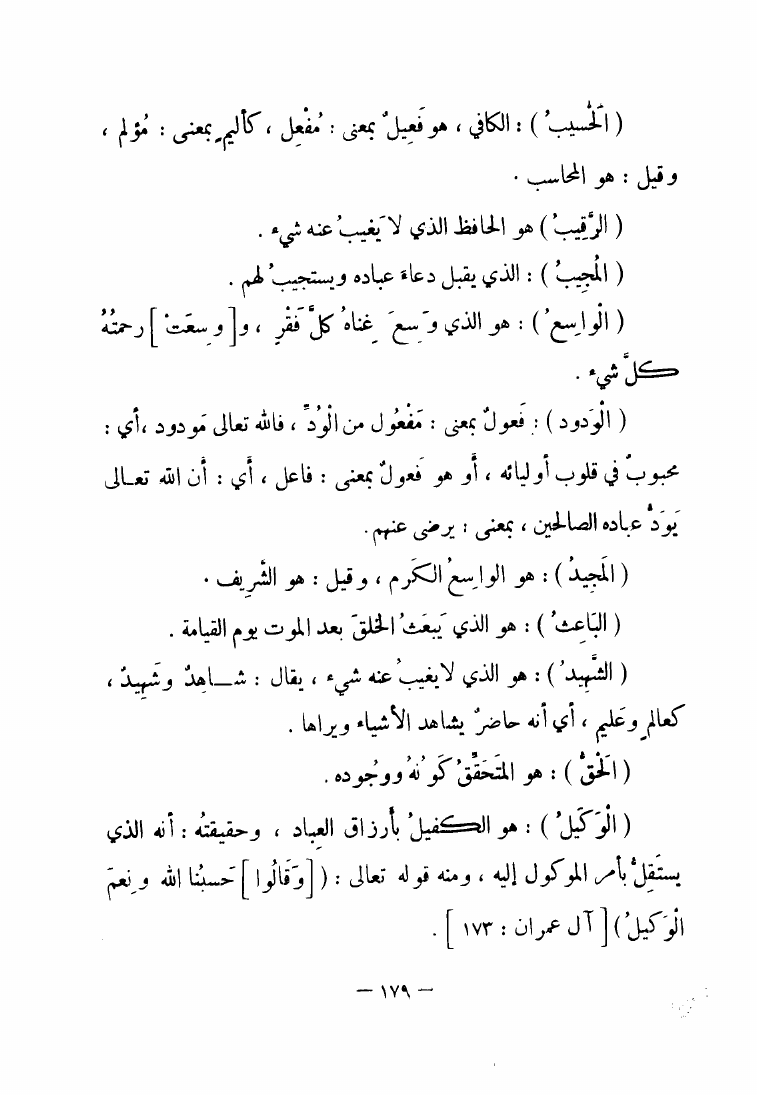 ( الْحَسيبُ ) : الكافي ، هو فَعِيلٌ بمعنى : مُفْعِل ، كأليمٍ بمعنى : مُؤلم ،
وقيل : هو المحاسب .
( الرَّقِيبُ ) هو الحافظ الذي لا يَغيبُ عنه شيء .
( المُجِيبُ ) : الذي يقبل دعاءَ عباده ويستجيبُ لهم .
( الْواسِعُ ) : هو الذي وَسِعَ غِناهُ كلَّ فَقْرٍ ، و[ وسِعَتْ ] رحمتُهُ
كلَّ شيء .
( الْوَدود ) : فَعولٌ بمعنى : مَفْعُول من الْوُدِّ ، فالله تعالى مَودود ، أي :
محبوبٌ في قلوب أوليائه ، أَو هو فَعولٌ بمعنى : فاعل ، أَي : أَن الله تعالى
يَوَدُّ عباده الصالحين ، بمعنى : يرضى عنهم .
( المَجِيدُ ) : هو الواسِعُ الكَرم ، وقيل : هو الشَّرِيف .
( البَاعِثُ ) : هو الذي يَبعَثُ الخلقَ بعد الموت يوم القيامة .
( الشَّهِيدُ ) : هو الذي لا يغيبُ عنه شيء ، يقال : شاهِدٌ وشَهِيدٌ ،
كعالمٍ وعَليمٍ ، أي أنه حاضرٌ يشاهد الأشياء ويراها .
( الحَقُّ ) : هو المتَحَقِّقُ كَونُهُ ووجُوده .
( الْوَكَيلُ ) : هو الكفيلُ بأَرزاق العِباد ، وحقيقتُه : أنه الذي
يستَقِلُّ بأمر الموكول إليه ، ومنه قوله تعالى : ( [ وَقَالُوا ] حَسبُنا الله ونِعمَ
الْوَكيلُ ) [ آل عمران : ١٧٣ ] .
— ١٧٩ —